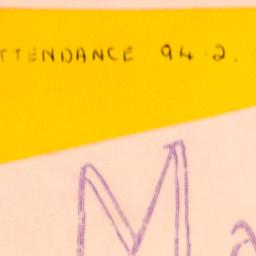 TTENDANCE 94.2.
Ma